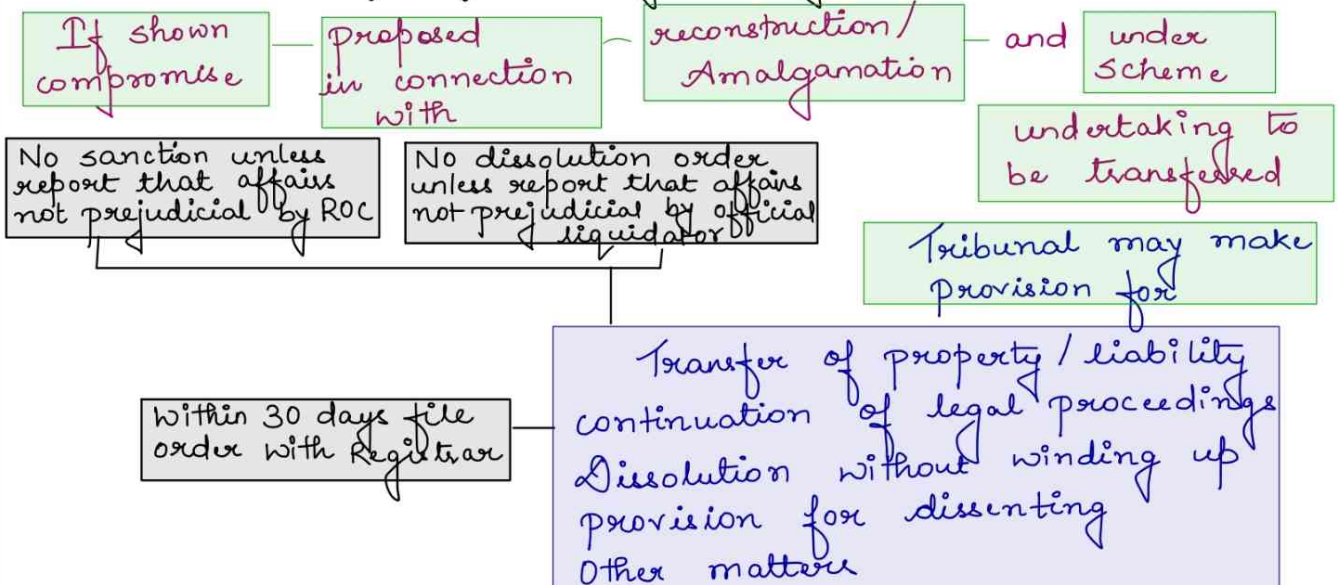 If shown
compromise
proposed
in connection
with
reconstruction/
Amalgamation
and
under
scheme
undertaking to
be transferred
No sanction unless
report that affairs
not prejudicial by ROC
No dissolution order
unless report that affairs
not prejudicial by official
liquidator
Tribunal may make
provision for
Transfer of property / liability
continuation of legal proceedings
Dissolution without winding up
provision for dissenting
Other matters
within 30 days file
order with Registrar